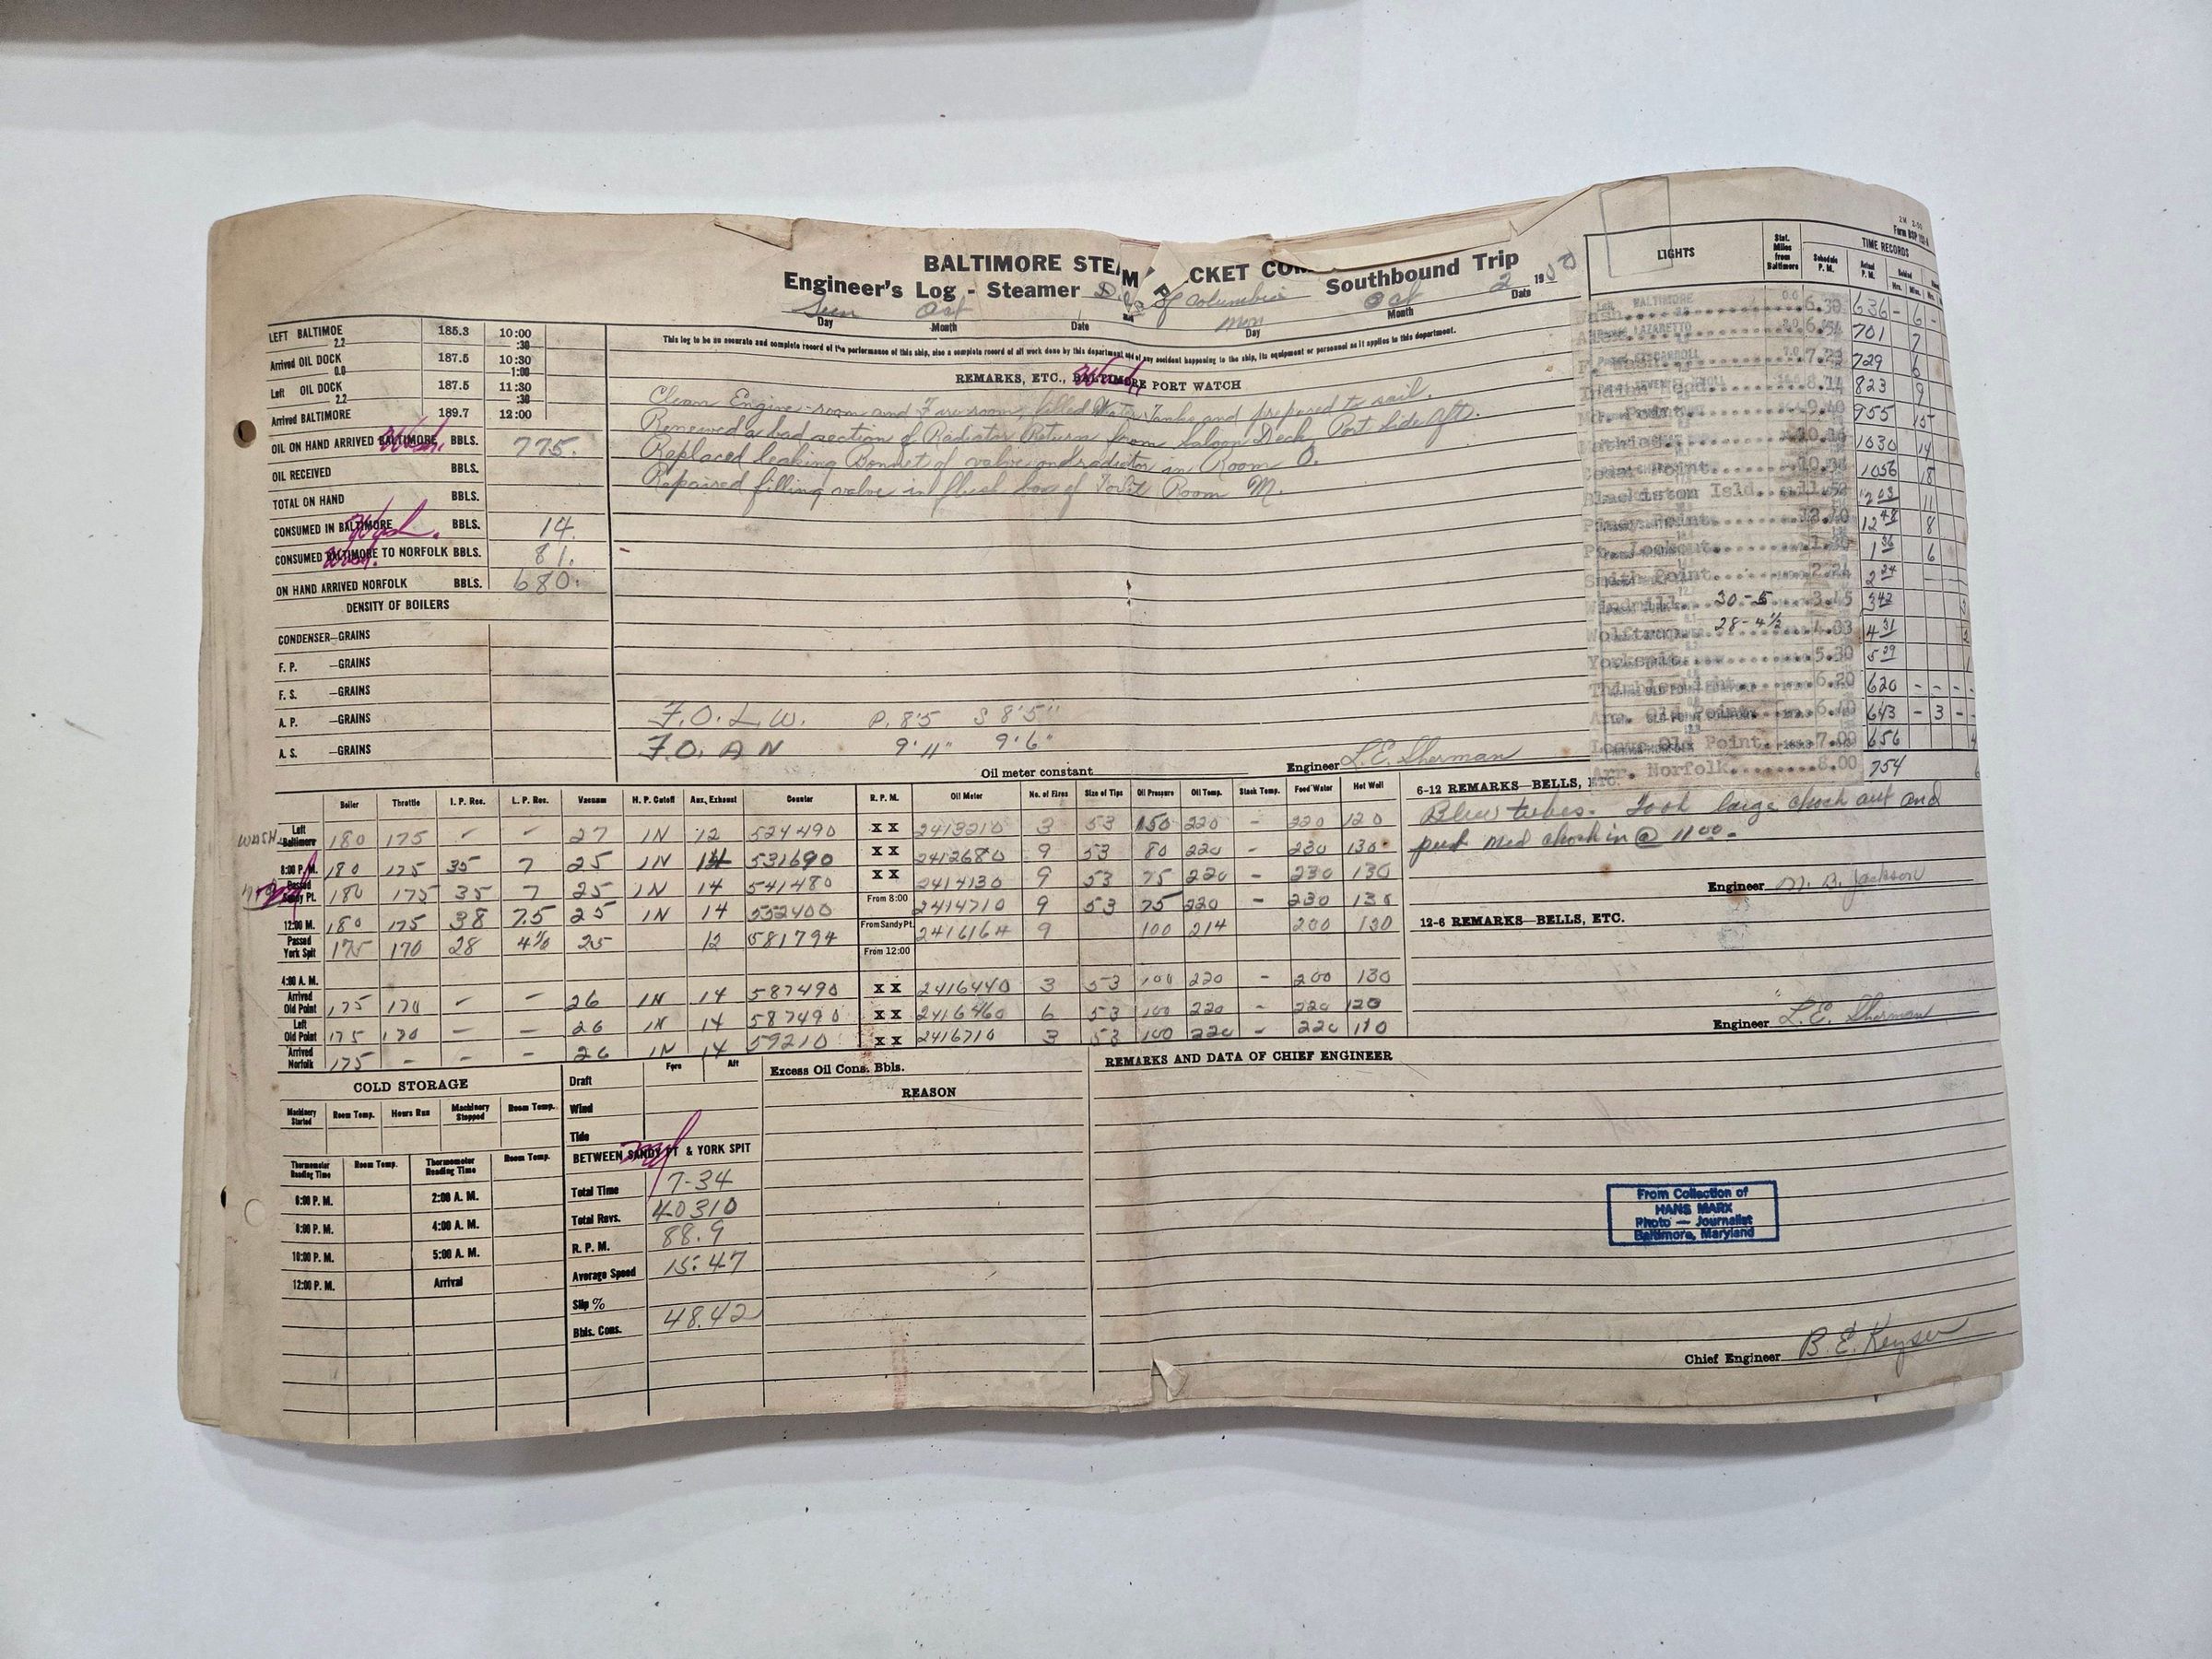 2M 2-50
Form BSP 123-A
BALTIMORE STEAM PACKET COM
Engineer's Log - Steamer Dist of Columbia Southbound Trip
Sun Oct Mon Oct 2 1950
Day Month Date Day Month Date
This log to be an accurate and complete record of the performance of this ship, also a complete record of all work done by this department and of any accident happening to the ship, its equipment or personnel as it applies to this department.
LEFT BALTIMOE 185.3 10:00
2.2 :30
Arrived OIL DOCK 187.5 10:30
0.0 1:00
Left OIL DOCK 187.5 11:30
2.2 :30
Arrived BALTIMORE 189.7 12:00
OIL ON HAND ARRIVED BALTIMORE Wash. BBLS. 775.
OIL RECEIVED BBLS.
TOTAL ON HAND BBLS.
CONSUMED IN BALTIMORE Wash. BBLS. 14.
CONSUMED BALTIMORE Wash. TO NORFOLK BBLS. 81.
ON HAND ARRIVED NORFOLK BBLS. 680.
DENSITY OF BOILERS
CONDENSER—GRAINS
F. P. —GRAINS
F. S. —GRAINS
A. P. —GRAINS
A. S. —GRAINS
REMARKS, ETC., BALTIMORE Wash. PORT WATCH
Clean Engine-room and Fire room, filled Water Tanks and prepared to sail.
Renewed a bad section of Radiator Return from Saloon Deck, Port Side Aft.
Replaced leaking Bonnet of valve on radiator in Room O.
Repaired filling valve in flush box of Toilet Room M.
F.O.L.W. P. 8'5 S 8'5"
F.O.A N 9'11" 9'6"
Oil meter constant
Engineer L.E. Sherman
LIGHTS Stat. Miles from Baltimore TIME RECORDS
Schedule P. M. Actual P. M. Behind Hrs. Min. Hrs.
Wash. 6.30 636 - 6 -
6.54 701 7
F. Wash. 7.23 729 6
Indian Head 8.14 823 9
Md. Point 9.40 955 15
Mathias 10.16 1030 14
Colonial Point 1056 18
Blackiston Isld. 11.52 12 03 11
Piney Point 12.40 12 48 8
Pt. Lookout 1.30 1 36 6
Smith Point 2.24 2 24
Windmill 30-5 3.45 3 42 3
Wolftrap 28-4½ 4.33 4 31 2
Yorkspit 5.30 5 29 1
Thimble Light 6.20 620 - - - -
Arr. Old Point 6.40 643 - 3 - -
Leave Old Point 7.00 656 4
Arr. Norfolk 8.00 754 6
Boiler Throttle I. P. Rec. L. P. Rec. Vacuum H. P. Cutoff Aux. Exhaust Counter R. P. M. Oil Meter No. of Fires Size of Tips Oil Pressure Oil Temp. Stack Temp. Feed Water Hot Well
WASH. Left Baltimore 180 175 - - 27 IN 12 524490 X X 2413210 3 53 150 220 - 220 120
8:00 P. M. 180 175 35 7 25 IN 14 531690 X X 2412680 9 53 80 220 - 230 130
Passed Sandy Pt. 180 175 35 7 25 IN 14 541480 X X 2414130 9 53 75 220 - 230 130
12:00 M. 180 175 38 7.5 25 IN 14 552400 From 8:00 2414710 9 53 75 220 - 230 130
Passed York Spit 175 170 28 4½ 25 12 581794 From Sandy Pt. 2416164 9 100 214 200 130
From 12:00
4:00 A. M.
Arrived Old Point 175 170 - - 26 IN 14 587490 X X 2416440 3 53 100 220 - 200 130
Left Old Point 175 170 - - 26 IN 14 587490 X X 2416460 6 53 100 220 - 220 120
Arrived Norfolk 175 - - - 26 IN 14 59210 X X 2416710 3 53 100 220 - 220 110
6-12 REMARKS—BELLS, ETC.
Blew tubes. Took large chock out and
put med chock in @ 11 00 -
Engineer M. B. Jackson
12-6 REMARKS—BELLS, ETC.
Engineer L.E. Sherman
COLD STORAGE
Machinery Started Room Temp. Hours Run Machinery Stopped Room Temp.
Thermometer Reading Time Room Temp. Thermometer Reading Time Room Temp.
6:00 P. M. 2:00 A. M.
8:00 P. M. 4:00 A. M.
10:00 P. M. 5:00 A. M.
12:00 P. M. Arrival
Fore Aft
Draft
Wind
Tide
BETWEEN SANDY PT & YORK SPIT
Total Time 7-34
Total Revs. 40310
R. P. M. 88.9
Average Speed 15.47
Slip %
Bbls. Cons. 48.42
Excess Oil Cons. Bbls.
REASON
REMARKS AND DATA OF CHIEF ENGINEER
From Collection of
HANS MARX
Photo — Journalist
Baltimore, Maryland
Chief Engineer B. E. Keyser